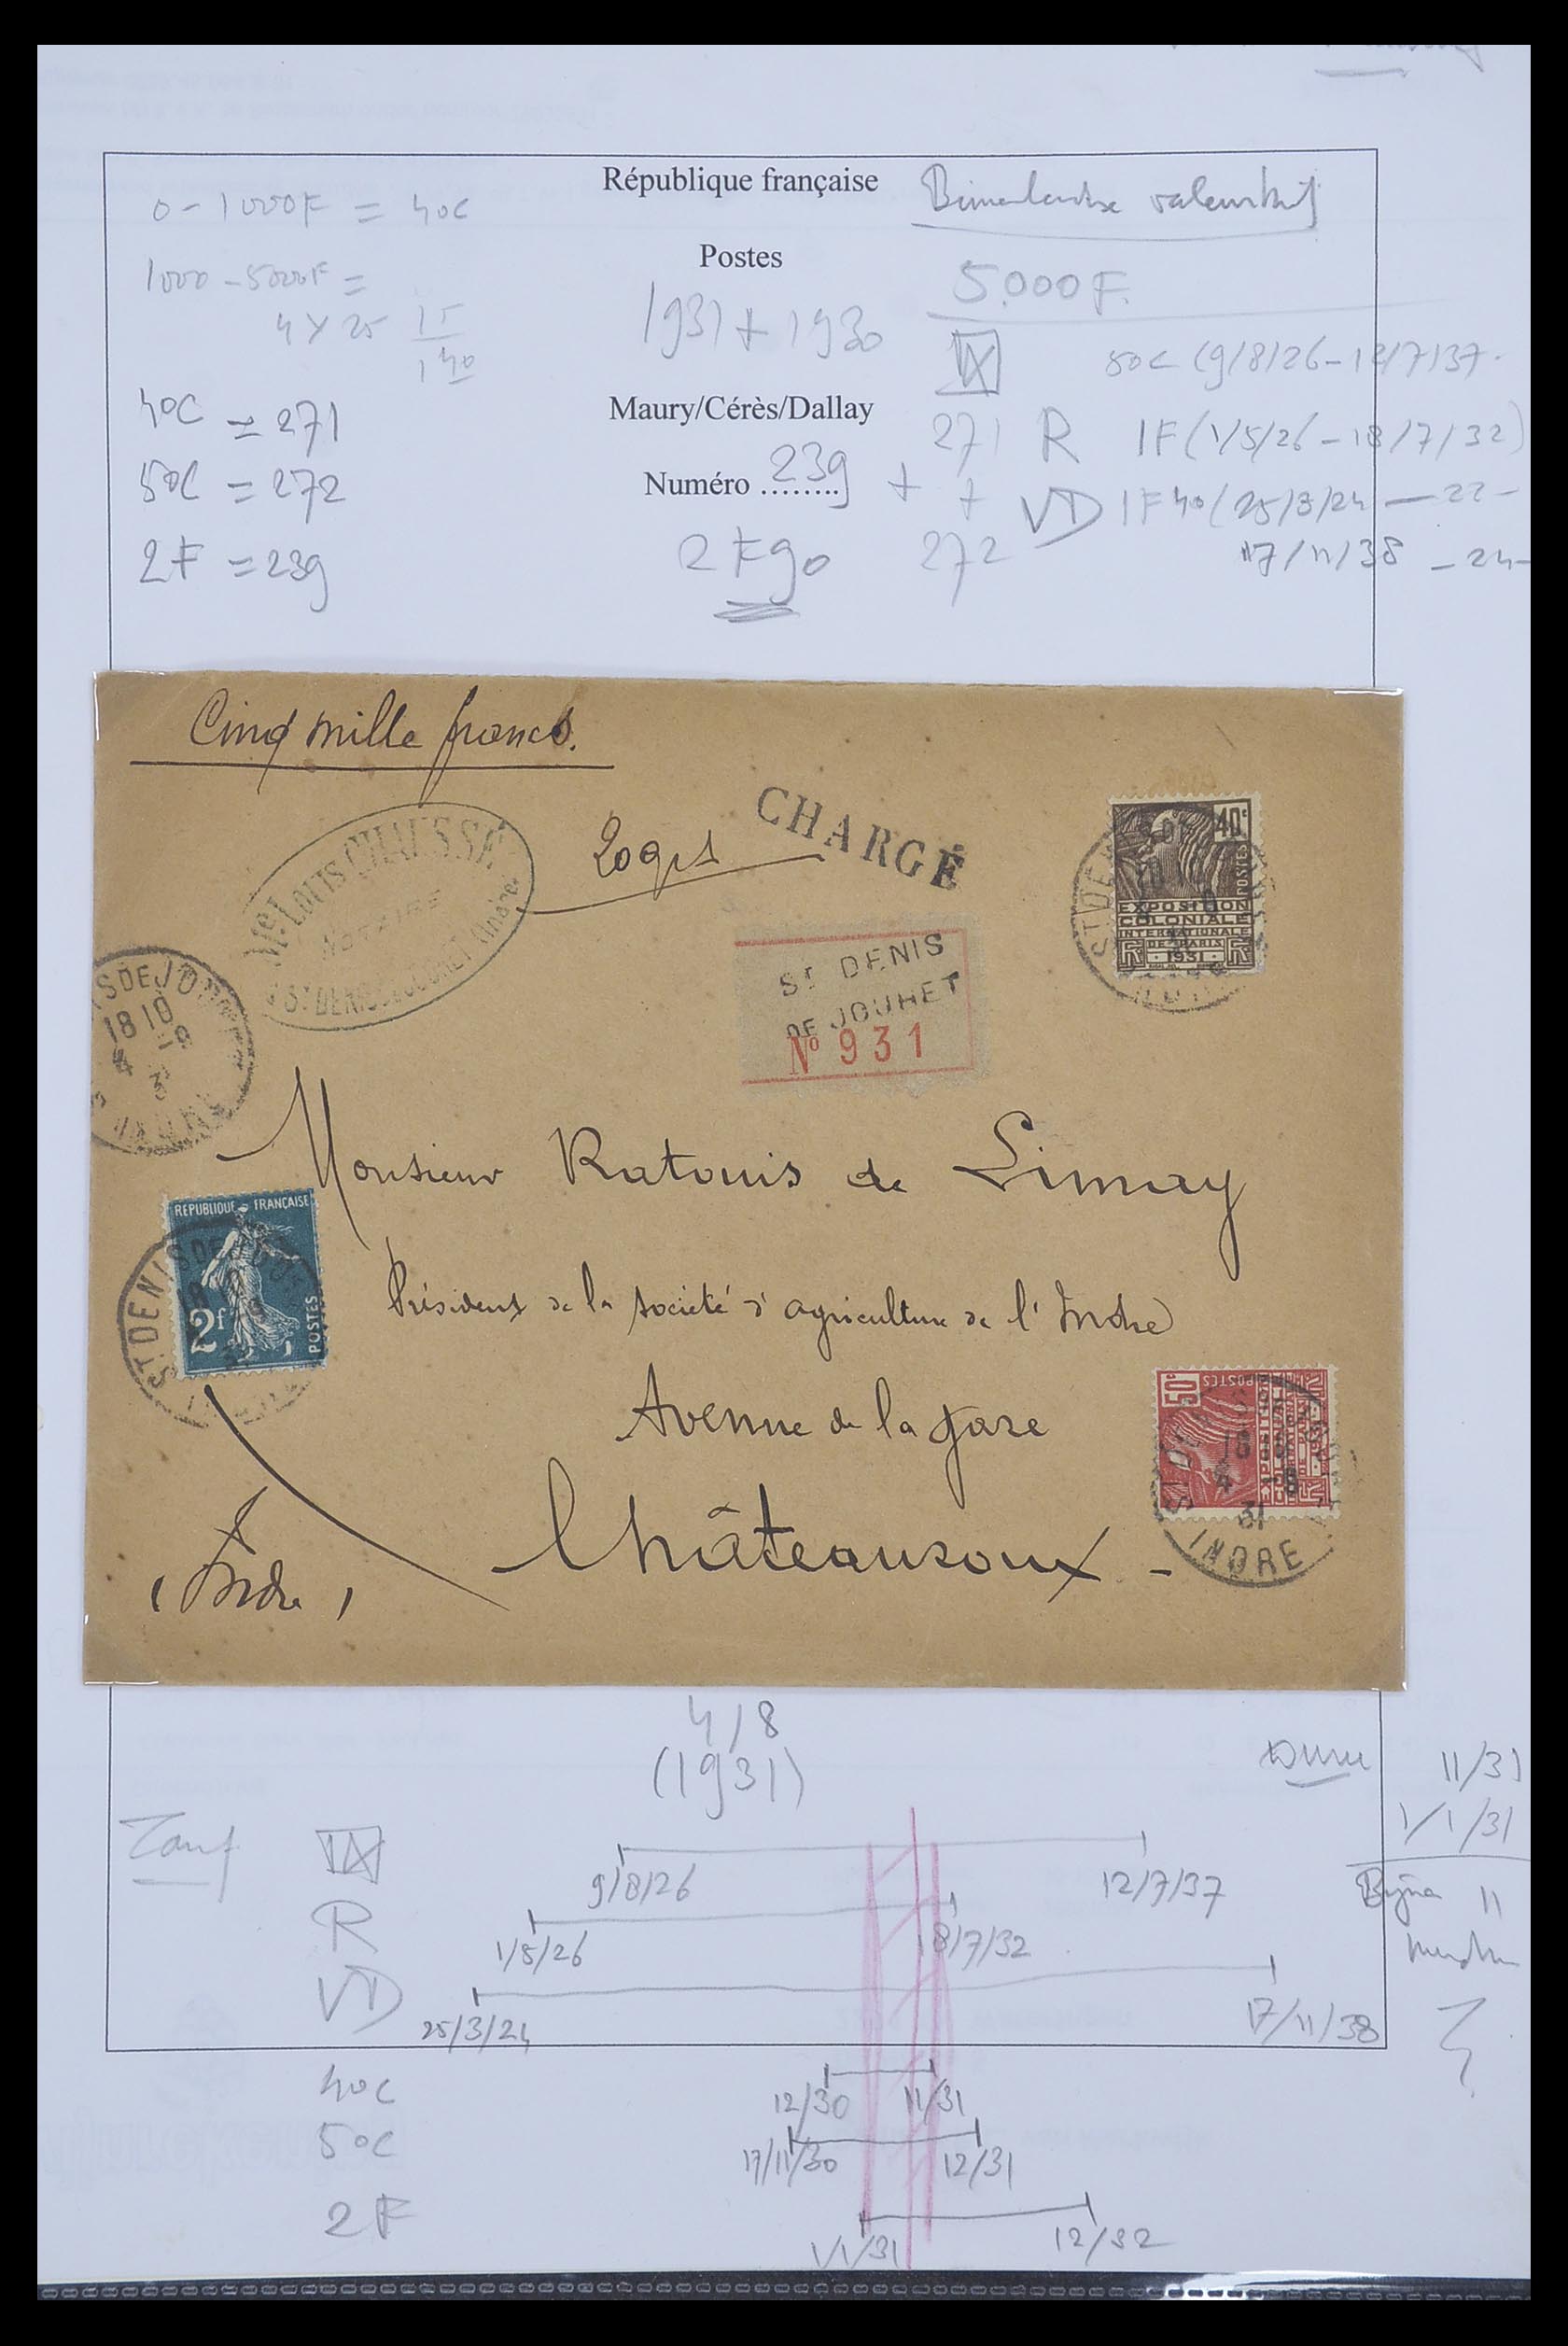 République française
0 - 1000F = 40c
Postes
1000 - 5000F =
5.000F.
4 × 25
15
1 40
1931 + 1930
50c (9/8/26 - 12/7/37.
Maury/Cérès/Dallay
40c = 271
271 R 1F (1/5/26 - 18/7/32)
Numéro ........ 239 + +
50c = 272
VD 1F40 (25/3/24 - 22 -
2F = 239
2F90
272
17/11/38 - 24 -
Cinq mille francs.
20grs
CHARGÉ
Me. LOUIS CHAUSSÉ
NOTAIRE
ST DENIS DE JOUHET (Indre)
40c
POSTES
EXPOSITION
COLONIALE
INTERNATIONALE
DE PARIS
1931
RF
ST DENIS
DE JOUHET
No 931
18 10
4 -8
31
INDRE
Monsieur Ratouis de Limay
REPUBLIQUE FRANÇAISE
2f
POSTES
ST DENIS DE JOUHET
Président de la société d'agriculture de l'Indre
Avenue de la gare
50c
POSTES
18 10
4 -8
31
INDRE
Châteauroux -
(Indre)
4/8
(1931)
11/31
1/1/31
Tarif
9/8/26
12/7/37
11
R
1/5/26
18/7/32
VD
25/3/24
17/11/38
40c
12/30
11/31
50c
17/11/30
12/31
2F
1/1/31
12/32